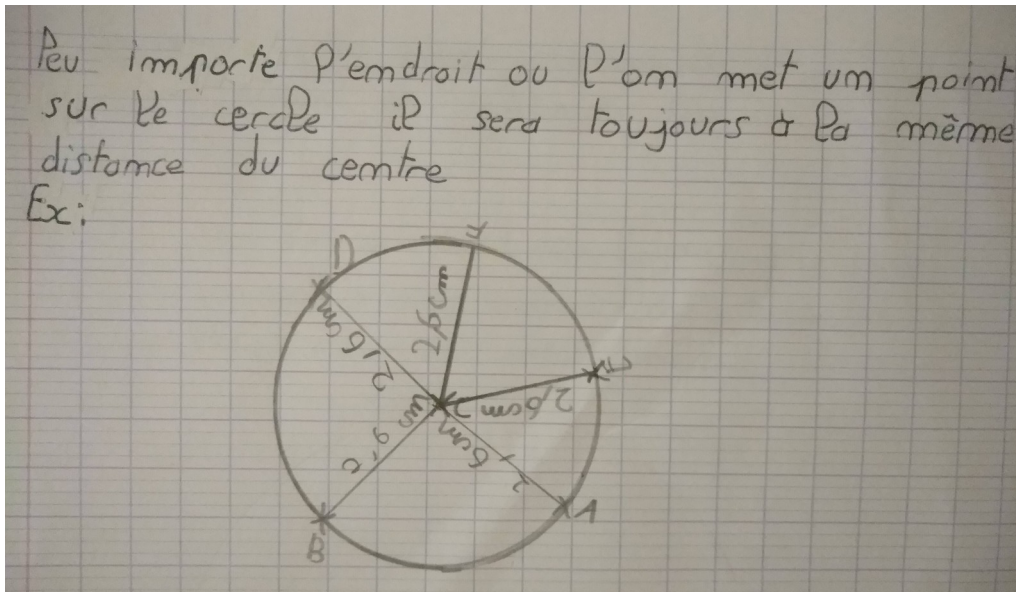 Peu importe l'endroit ou l'on met un point
sur le cercle il sera toujours à la même
distance du centre
Ex:
D
2,6cm
2,6cm
2,6cm
C
2,6cm
A
B